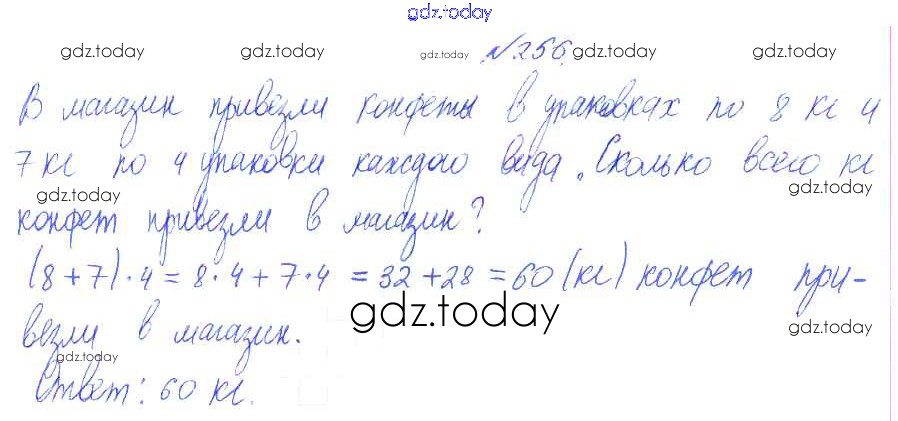 gdz.today
gdz.today gdz.today gdz.today №256 gdz.today gdz.today
В магазин привезли конфеты в упаковках по 8 кг и
7 кг по 4 упаковки каждого вида. Сколько всего кг
gdz.today gdz.today
конфет привезли в магазин?
(8+7)·4 = 8·4+7·4 = 32+28 = 60 (кг) конфет при-
gdz.today gdz.today
везли в магазин.
gdz.today
Ответ: 60 кг.